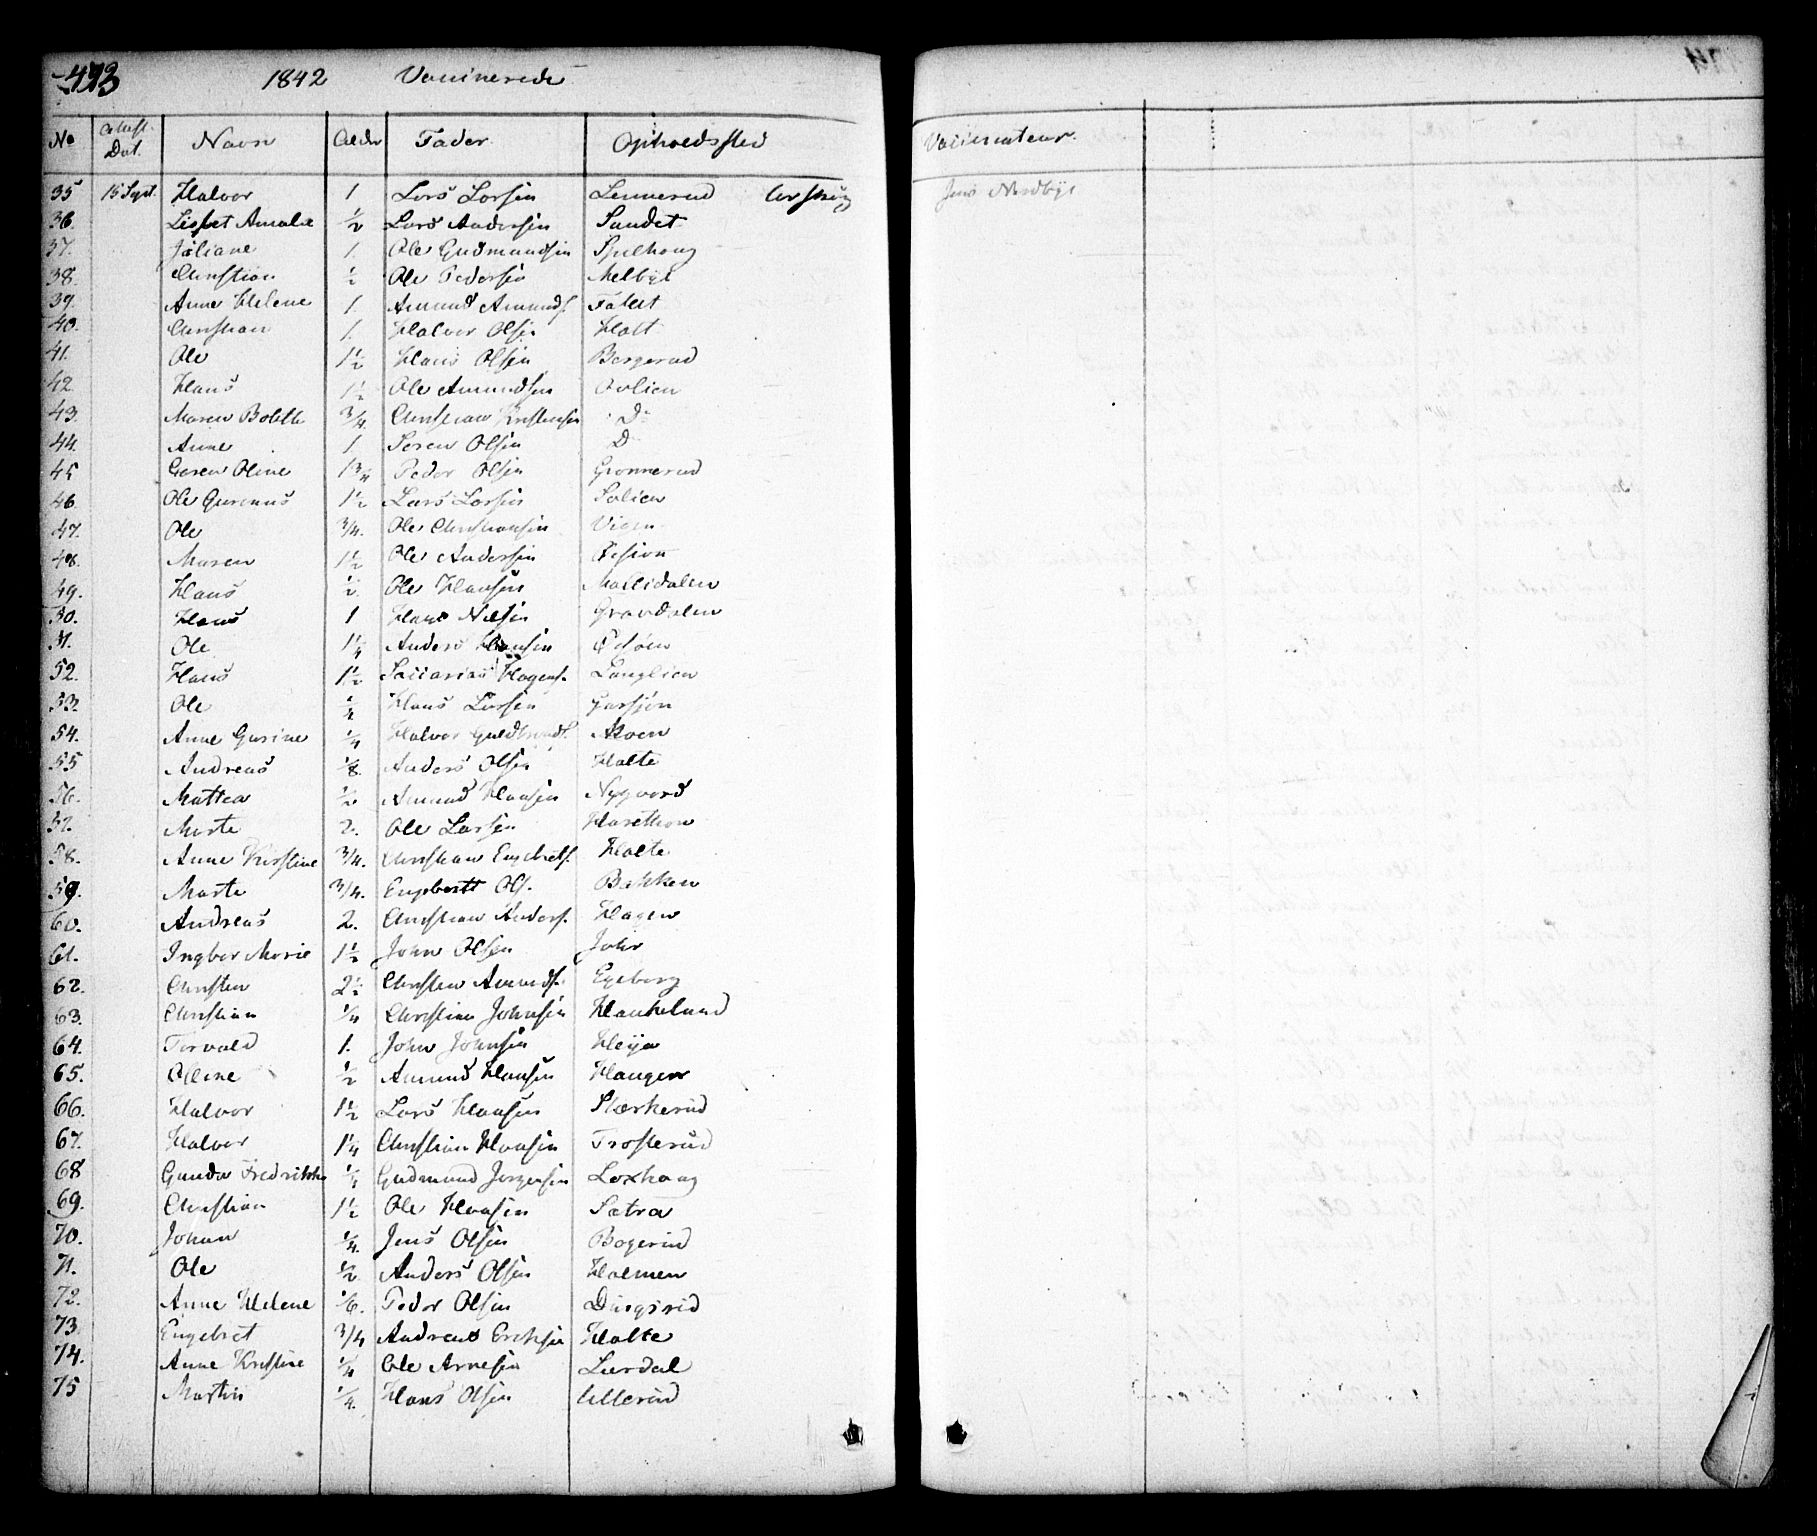 473 1842 Vaccinerede
No Attest. Dat. Navn Alder Fader Opholdssted Vaccinateur.
35 15 Sept. Halvor 1 Lars Larsen Lennerud Jens Nordbye
36. Lisbet Amalie 1/2 Lars Andersen Sandet
37. Juliane 1. Ole Gudmundsen Spulhoug
38. Christian 1/2 Ole Pedersen Melbye
39. Anne Helene 1. Amund Amunds. Fallet
40. Christian 1. Halvor Olsen Holt
41. Ole 1 1/2 Hans Olsen Bergerud
42. Hans 1 1/2 Ole Amundsen Aslien
43. Maren Bolette 3/4 Christian Kristensen Do
44. Anne 1 Soren Olsen D
45 Goren Oline 1 3/4 Peder Olsen Gronnerud
46 Ole Gurenus 1 1/2 Lars Larsen Solien
47. Ole 3/4. Ole Christiansen Vien
48. Maren 1 1/2 Ole Andersen
49. Hans 1/2. Ole Hansen Mallidalen
50. Hans 1 Hans Nilsen Gravdalen
51. Ole 1 1/4 Anders Hansen
52. Hans 1 1/2 Saccarias Hagens. Langlien
53. Ole 1/4 Hans Larsen Gursjøn
54. Anne Gurine 1/4 Halvor Guldbrands. Moen
55 Andreas 1/8. Anders Olsen Holte
56. Mattea 1/2 Amund Hansen Nygaard
57. Marte 2. Ole Larsen
58. Anne Kirstine 3/4. Christian Engebrets. Holte
59. Marte 3/4. Engebrett Ols. Bakken
60. Andreas 2. Christian Anders. Hagen
61. Ingbor Marie 1 1/2 John Olsen Johr
62. Christen 2 1/2 Christen Amunds. Egeberg
63. Christian 1/4 Christian Johnsen Haukelund
64. Torvald 1. John Johnsen Heija
65. Oline 1/2 Amund Hansen Haugen
66. Halvor 1 1/2 Lars Hansen Stærkerud
67. Halvor 1 1/4 Christian Hansen Trosterud
68 Gunda Fredrikke 1/4 Gudmund Jorgensen Loxhoug
69. Christian 1 1/2 Ole Hansen Satra
70. Johan 1/4. Jens Olsen Bogerud
71. Ole 1/2 Anders Olsen Holmen
72. Anne Helene 1/6. Peder Olsen Dingsrud
73. Engebret 3/4 Andreas Eriksen Holte
74. Anne Kristine 1/4 Ole Arnesen Lurdal
75 Martin 1/4. Hans Olsen Ullerud